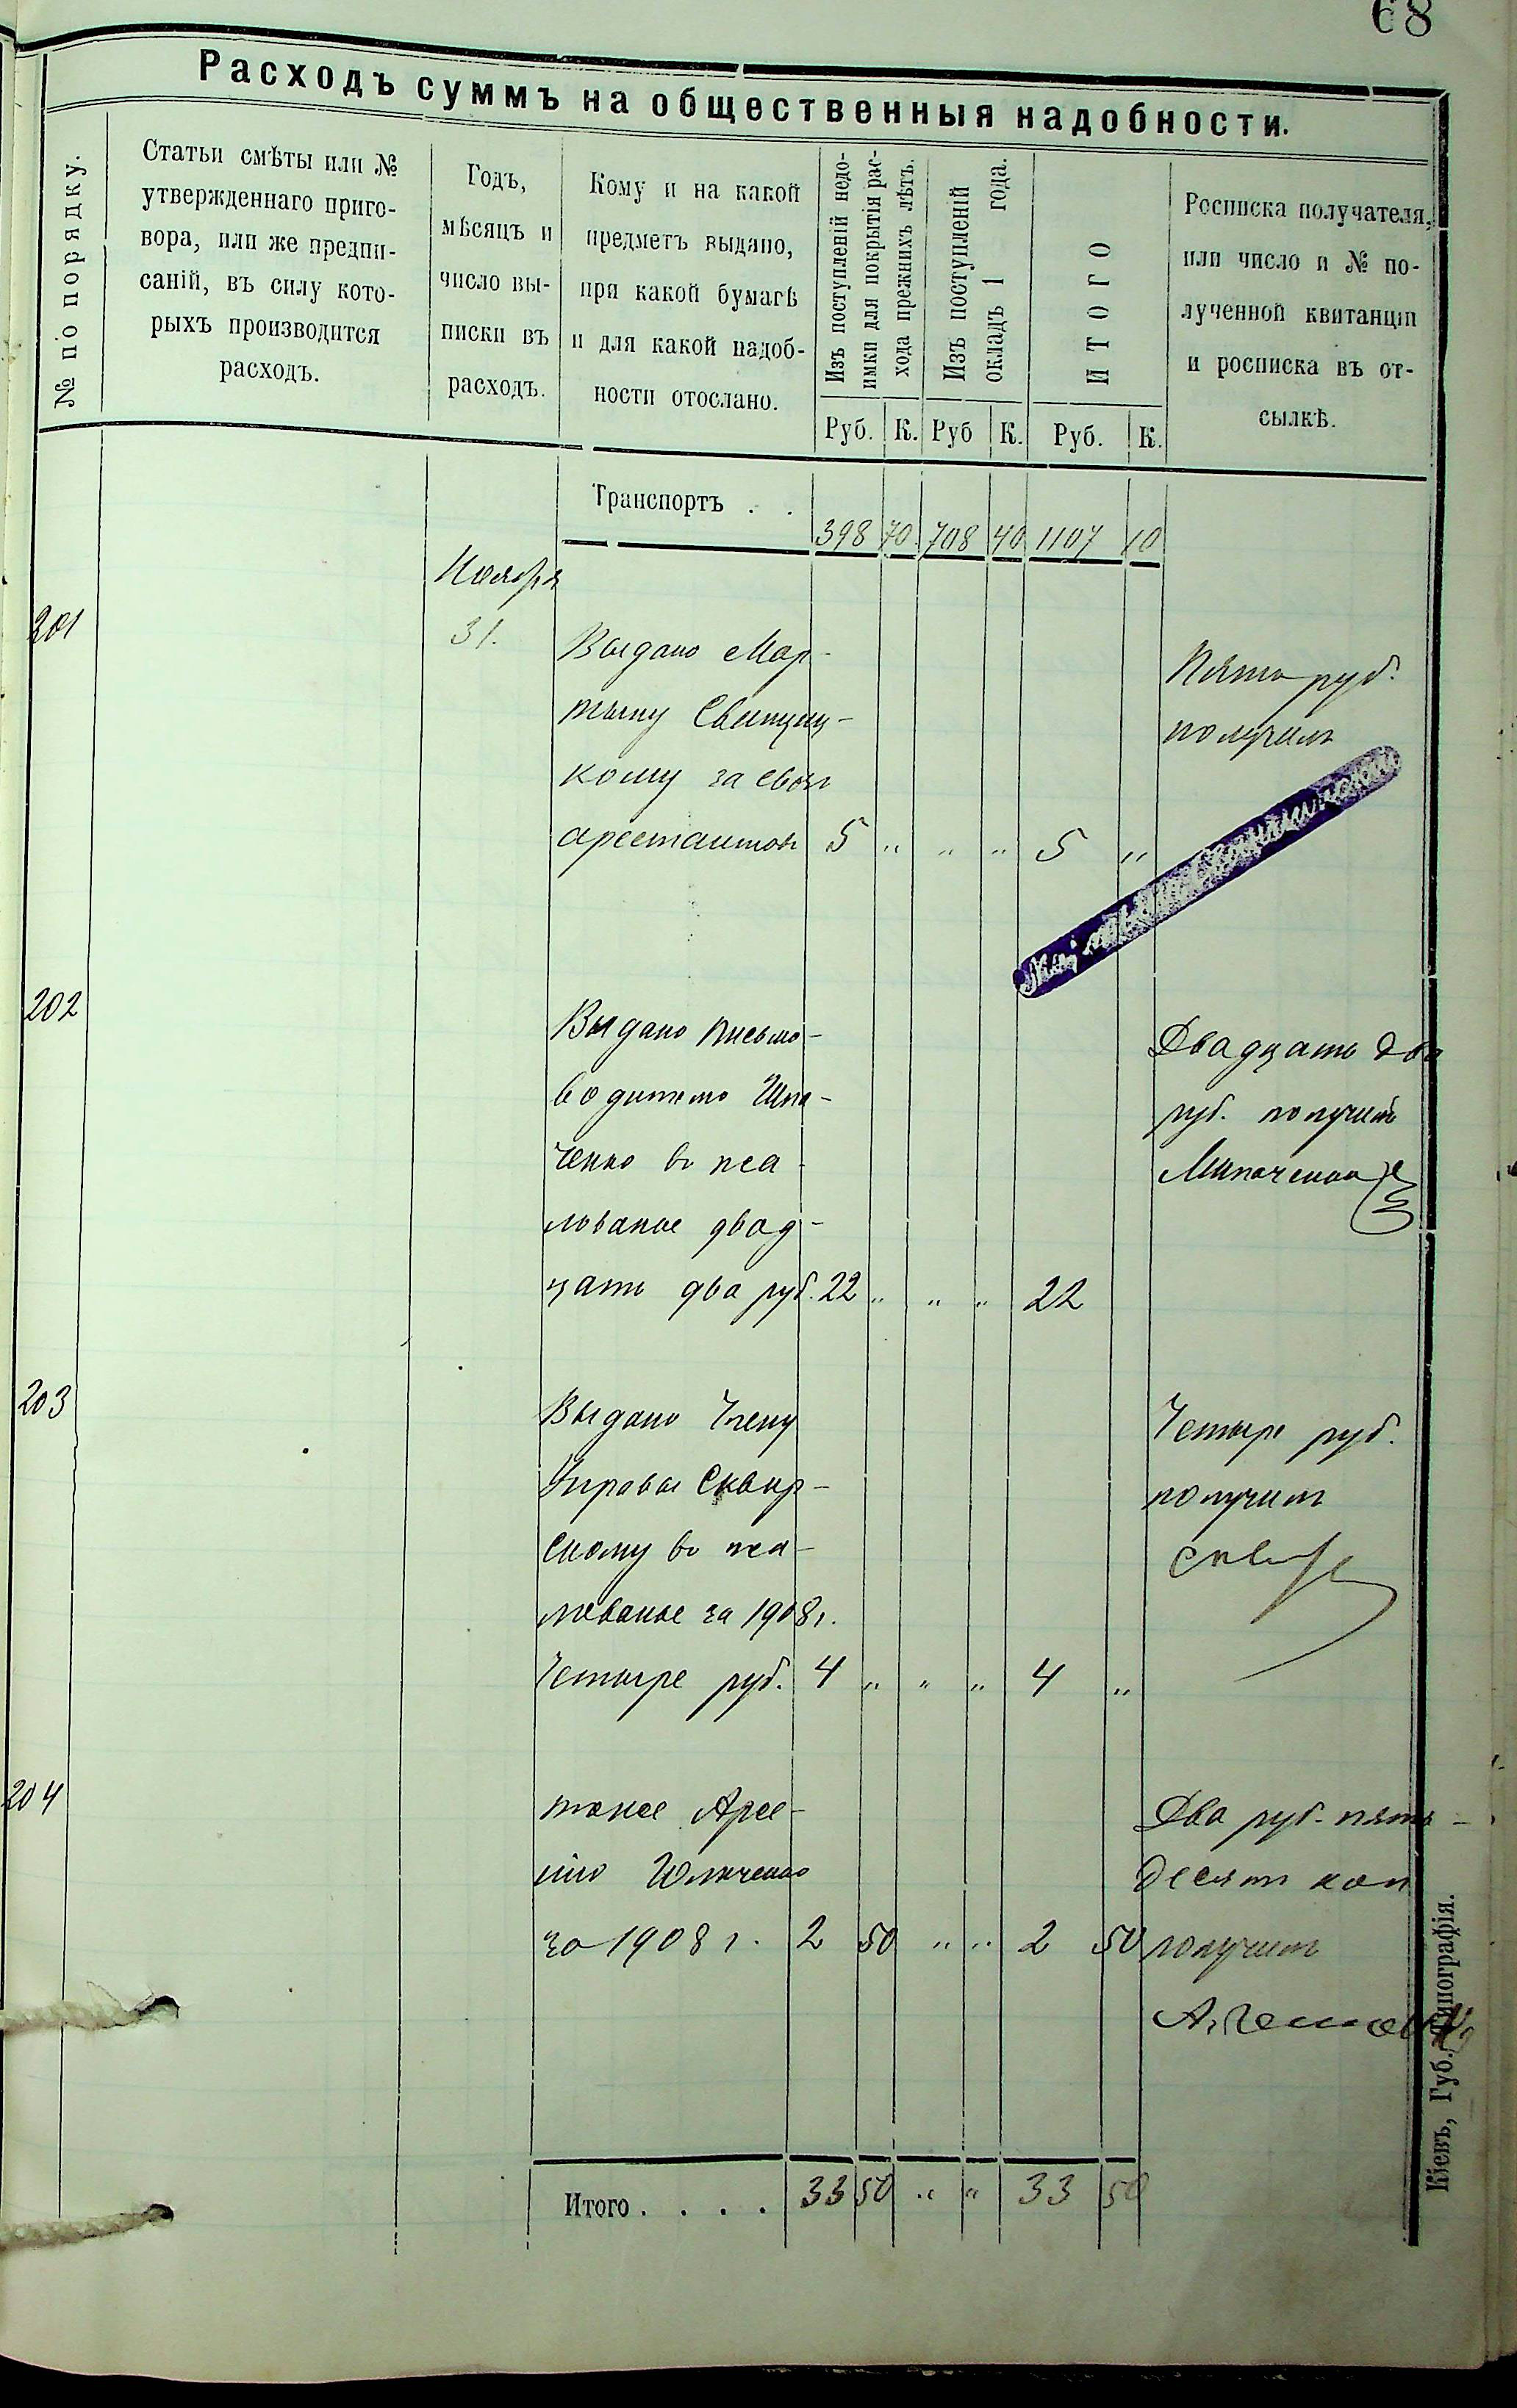 68
Расходъ суммъ на общественныя надобности.
№ по порядку.
Статьи смѣты или №
утвержденнаго приго-
вора, или же предпи-
саній, въ силу кото-
рыхъ производится
расходъ.
Годъ,
мѣсяцъ и
число вы-
писки въ
расходъ.
Кому и на какой
предметъ выдано,
при какой бумагѣ
и для какой надоб-
ности отослано.
Изъ поступленій недо-
имки для покрытія рас-
хода прежнихъ лѣтъ.
Изъ поступленій
окладъ 1 года.
ИТОГО
Росписка получателя,
или число и № по-
лученной квитанціи
и росписка въ от-
сылкѣ.
Руб. К. Руб К. Руб. К.
Транспортъ . . 398 70 708 40 1107 10
Ноября
201 31. Выдано Мар-
тыну Свинциц-
кому за
арестантовъ 5 " " " 5 "
Пять руб.
получилъ
202
Выдано письмо-
водителю
въ жа-
лованье двад-
цать два руб. 22 " " " 22
Двадцать два
руб. получилъ
203
Выдано Члену
Управы Сквир-
скому въ жа-
лованье за 1908 г.
Четыре руб. 4 " " " 4 "
Четыре руб.
получилъ
204
тоже
за 1908 г. 2 50 " " 2 50
Два руб. пять-
десят коп
получилъ
Итого . . . . 33 50 " " 33 50
Кіевъ, Губ. Типографія.